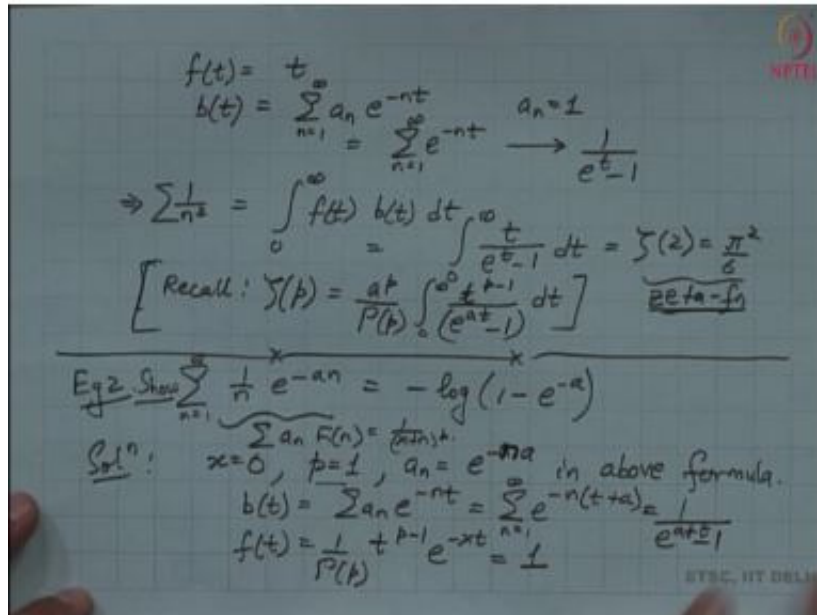 NPTEL
f(t) = t
b(t) = ∑_{n=1}^{∞} a_n e^{-nt}    a_n = 1
= ∑_{n=1}^{∞} e^{-nt} ⟶ 1/(e^t - 1)
⇒ ∑ 1/n² = ∫_0^∞ f(t) b(t) dt = ∫_0^∞ t/(e^t - 1) dt = ζ(2) = π²/6
[Recall: ζ(p) = a^p/Γ(p) ∫_0^∞ t^{p-1}/(e^{at} - 1) dt]    zeta-fn
Eg 2. Show ∑_{n=1}^{∞} 1/n e^{-an} = - log(1 - e^{-a})
∑ a_n F(n) = 1/(x+n)^p.
Solⁿ: x=0, p=1, a_n = e^{-na} in above formula.
b(t) = ∑ a_n e^{-nt} = ∑_{n=1}^{∞} e^{-n(t+a)} = 1/(e^{a+t} - 1)
f(t) = 1/Γ(p) t^{p-1} e^{-xt} = 1
ETSC, IIT DELHI